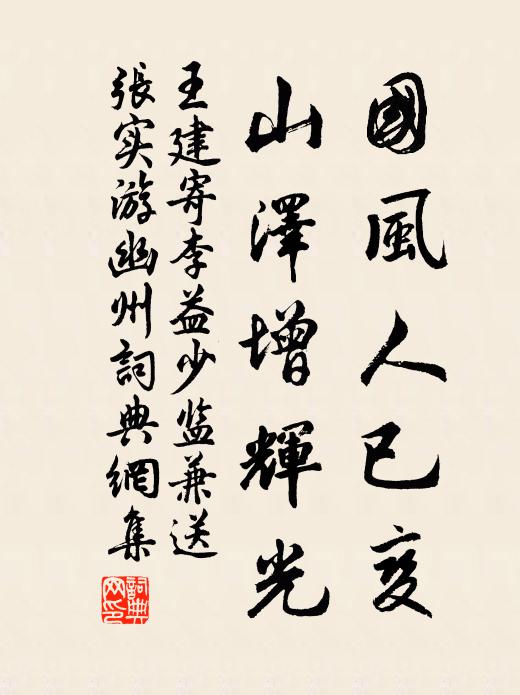 國風人已變
山澤增輝光
王建寄李益少监兼送
張实游幽州詞典網集
詞典网印